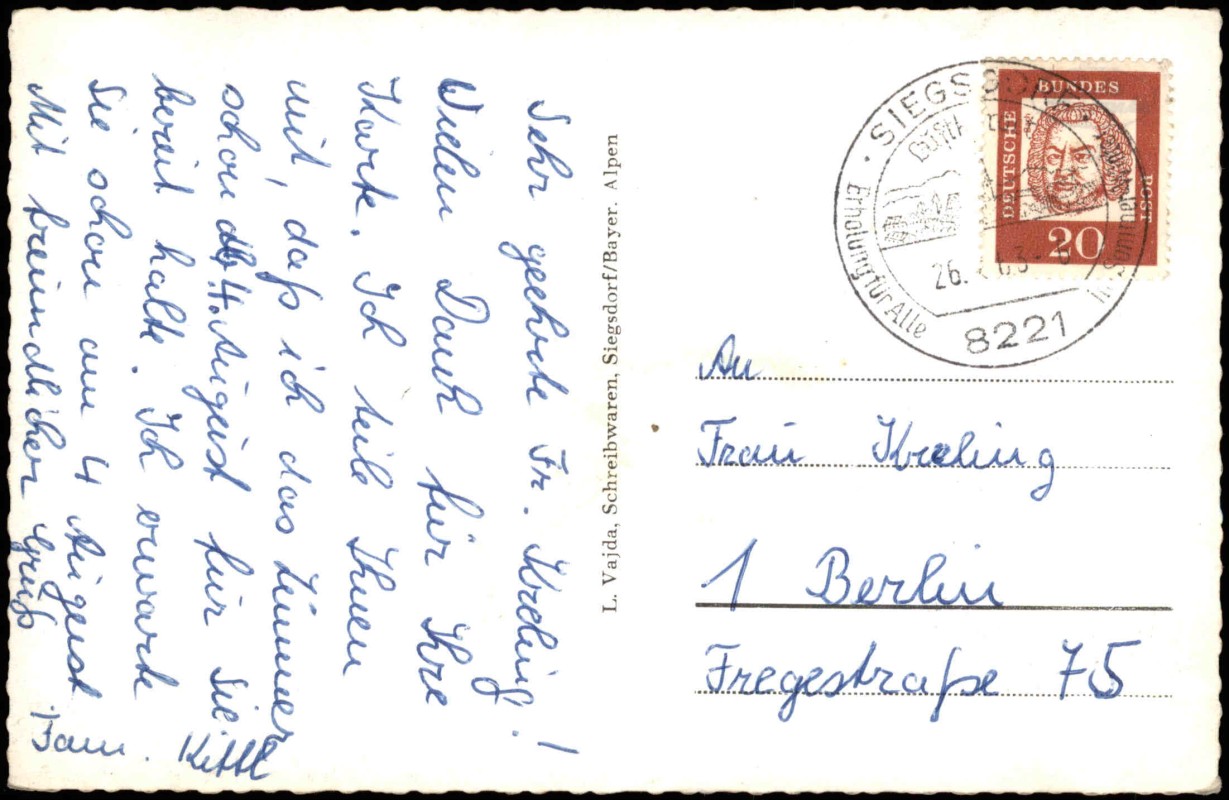 Sehr geehrte Fr. Kreling!
Vielen Dank für Ihre
Karte. Ich teile Ihnen
mit, daß ich das Zimmer
schon ab 4. August für Sie
bereit halte. Ich erwarte
Sie schon am 4 August
Mit freundlicher Gruß
Fam. Kittl
L. Vajda, Schreibwaren, Siegsdorf/Bayer. Alpen
SIEGSDORF
Erholung für Alle
26.
63
8221
DEUTSCHE
BUNDES
POST
20
An
Frau Kreling
1 Berlin
Fregestraße 75